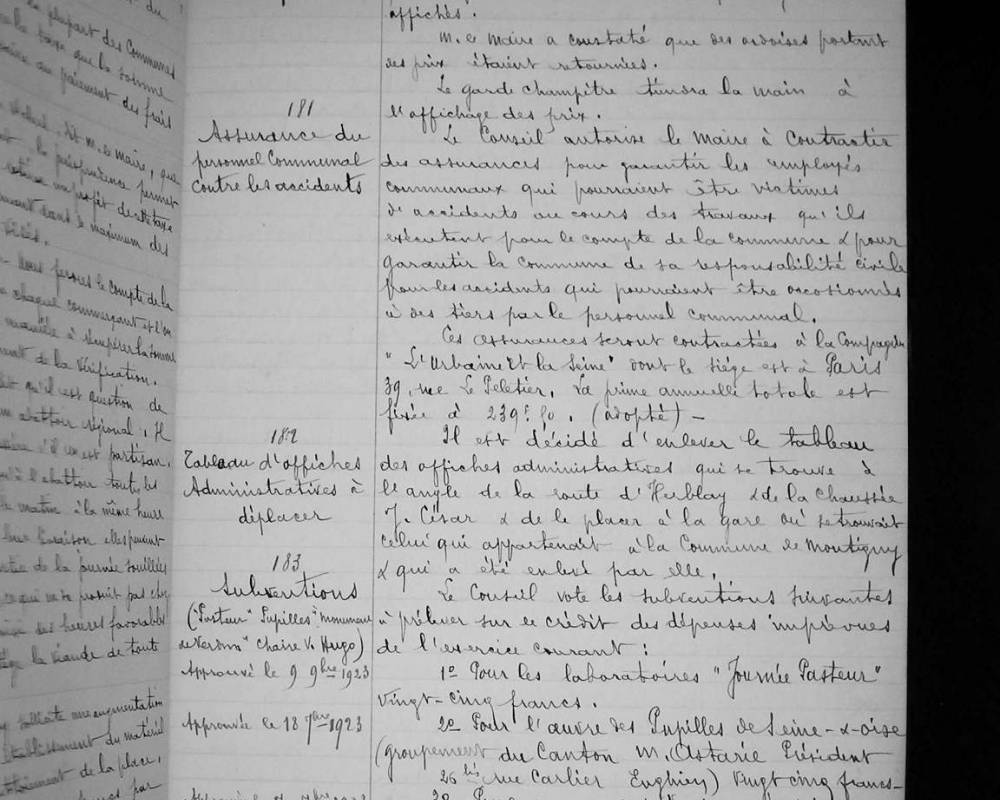 du
plupart des Communes
la taxe que la somme
au paiement des frais
dit M. le Maire, que
la jurisprudence permet
maximum des
nous ferons le compte de la
chaque commerçant et l'on
manière à récupérer la somme
de la vérification.
qu'il est question de
abattoir régional. Il
s'il en est partisan.
à l'abattoir tout, les
matin à la même heure
livraison elles peuvent
de la journée souillées
ce qui ne se produit pas chez
des heures favorables
la viande de toute
sollicite une augmentation
établissement du matériel
de la place,
par
181
Assurance du
personnel Communal
contre les accidents
182
Tableau d'affiches
Administratives à
déplacer
183
Subventions
("Pasteur" Pupilles" monument
de Verdun" Chaire V. Hugo)
Approuvé le 9 9bre 1923
Approuvée le 18 7bre 1923
affichés.
M. le Maire a constaté que des ardoises portant
les prix étaient retournées.
Le garde champêtre tiendra la main à
l'affichage des prix.
Le Conseil autorise le Maire à Contracter
des assurances pour garantir les employés
communaux qui pourraient être victimes
d'accidents au cours des travaux qu'ils
exécutent pour le compte de la commune & pour
garantir la commune de sa responsabilité civile
pour les accidents qui pourraient être occasionnés
à des tiers par le personnel communal.
Ces assurances seront contractées à la Compagnie
"L'Urbaine et la Seine" dont le siège est à Paris
39, rue Le Peletier. La prime annuelle totale est
fixée à 239f 50. (adopté) –
Il est décidé d'enlever le tableau
des affiches administratives qui se trouve à
l'angle de la route d'Herblay & de la Chaussée
J. César & de le placer à la gare où se trouvait
celui qui appartenait à la Commune de Montigny
& qui a été enlevé par elle.
Le Conseil vote les subventions suivantes
à prélever sur le crédit des dépenses imprévues
de l'exercice courant :
1º Pour les laboratoires "Journée Pasteur"
vingt-cinq francs.
2º Pour l'œuvre des Pupilles de Seine-&-Oise
(groupement du Canton M. Astarie Président
26 bis rue Carlier Enghien) vingt cinq francs –